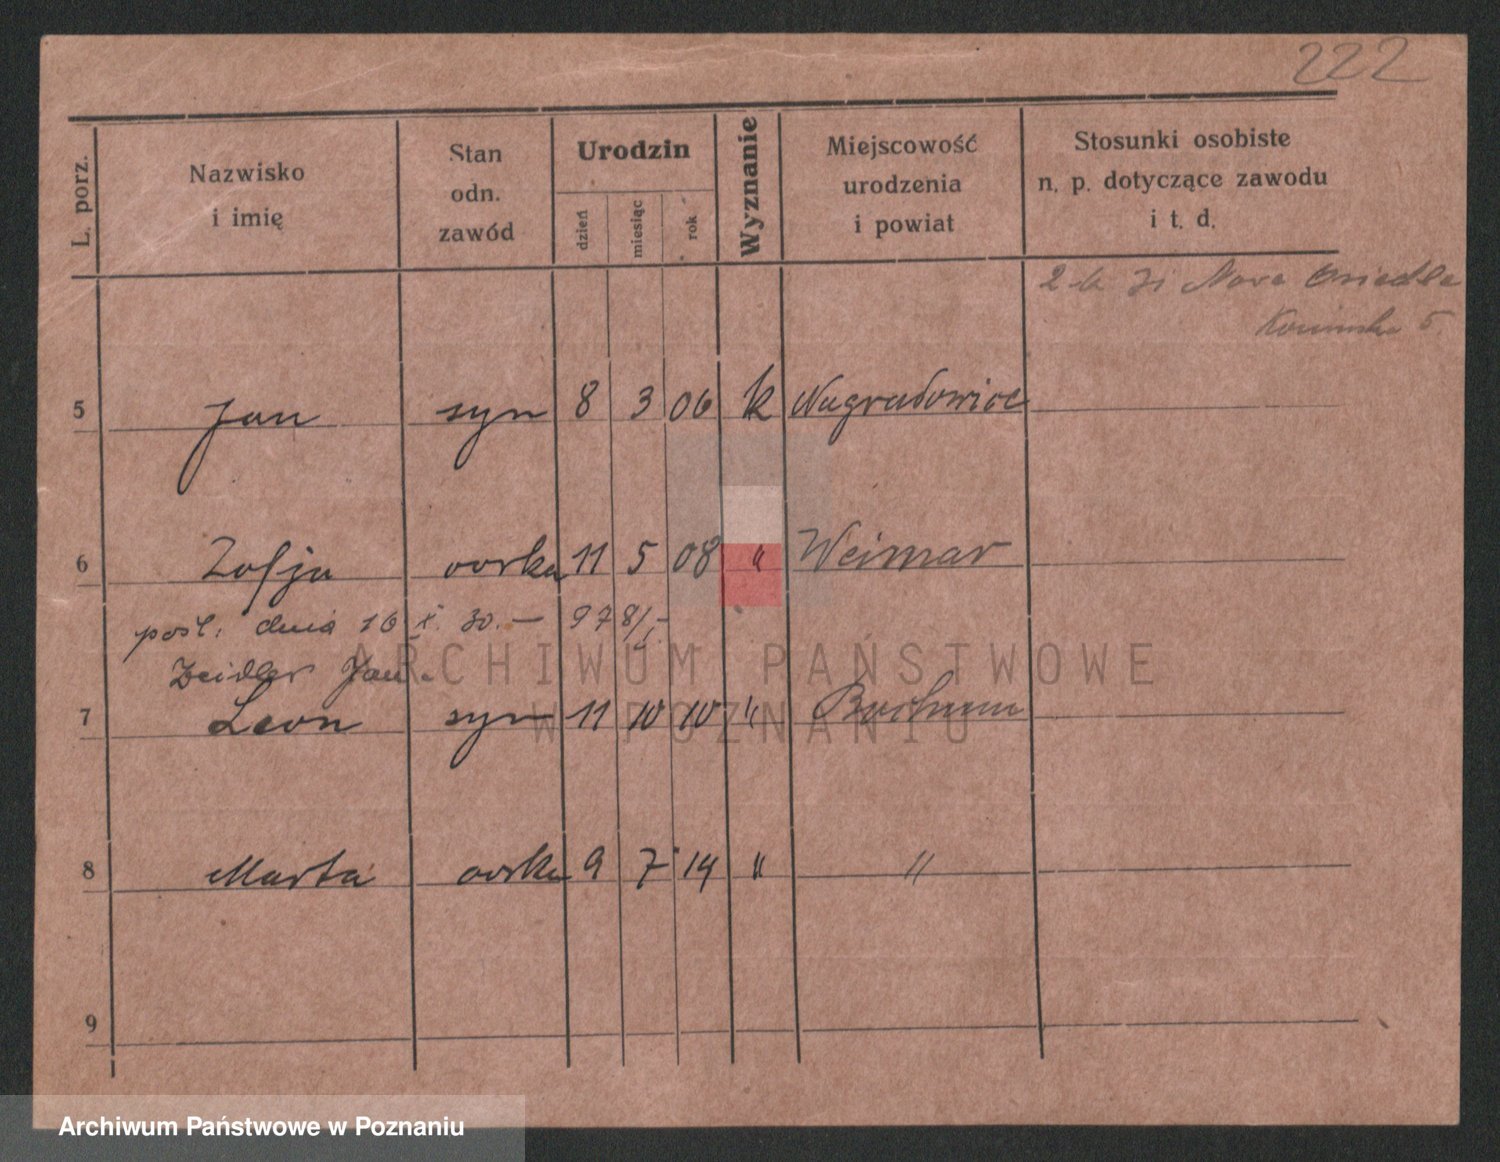 222
L. porz.
Nazwisko
i imię
Stan
odn.
zawód
Urodzin
dzień
miesiąc
rok
Wyznanie
Miejscowość
urodzenia
i powiat
Stosunki osobiste
n. p. dotyczące zawodu
i t. d.
Nowe Osiedle
5
5 Jan syn 8 3 06 k Nagradowice
6 Zofja corka 11 5 08 " Weimar
pośl. dnia 16 X. 30.— 978/
Zeidler Jan.
7 Leon syn 11 10 10 " Bochum
8 Marta corka 9 7 14 " "
9
ARCHIWUM PAŃSTWOWE
W POZNANIU
Archiwum Państwowe w Poznaniu